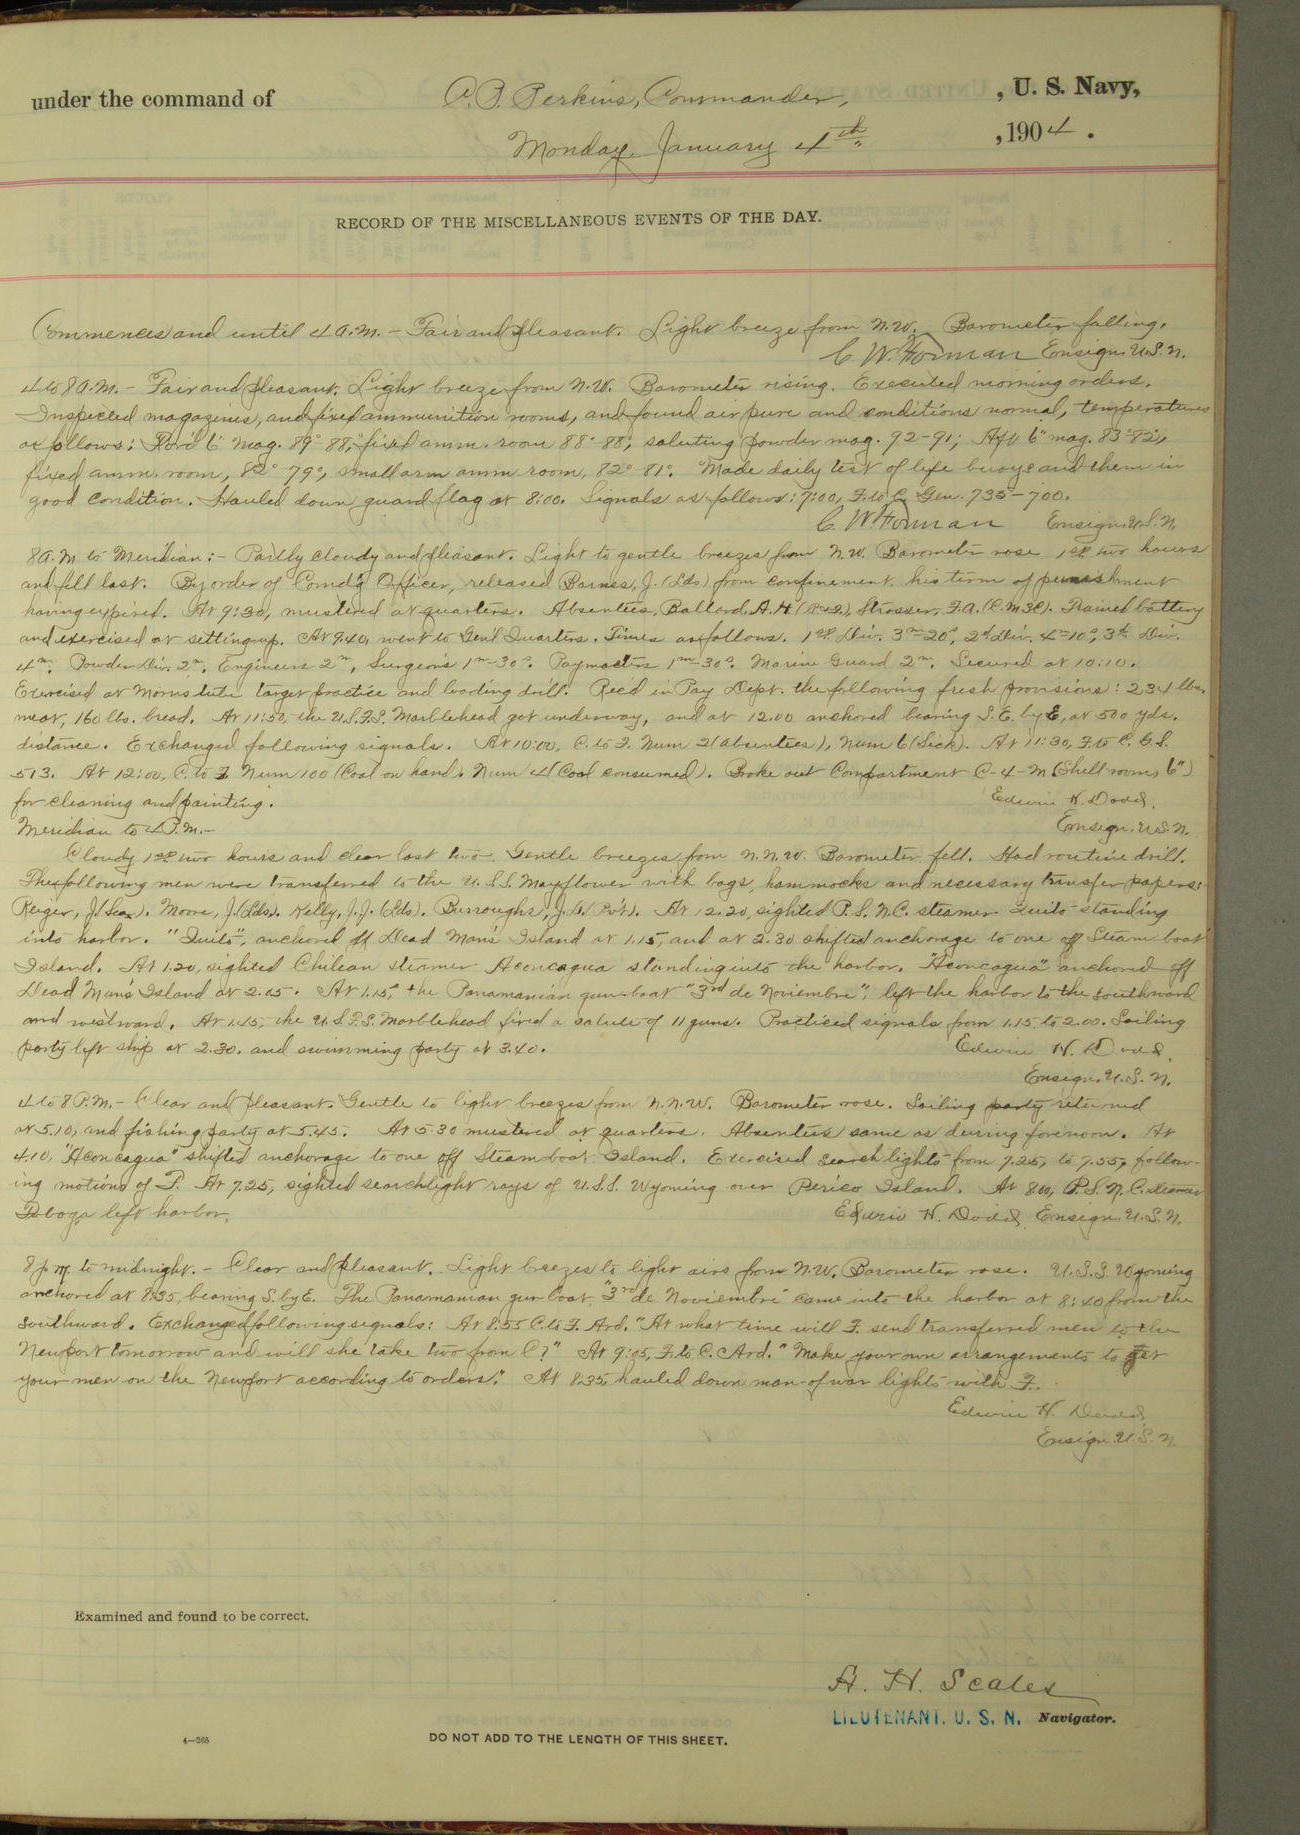 under the command of C. P. Perkins, Commander, , U. S. Navy,
Monday, January 4th , 1904 .
RECORD OF THE MISCELLANEOUS EVENTS OF THE DAY.
Commences and until 4 A.M. - Fair and pleasant. Light breeze from N.W. Barometer falling.
C. W. Forman Ensign U.S.N.
4 to 8 A.M. - Fair and pleasant. Light breeze from N.W. Barometer rising. Executed morning orders.
Inspected magazines, and fixed ammunition rooms, and found air pure and conditions normal, temperatures
as follows: For'd 6" mag. 89°-88°, fixed amm. room 88°-88°, saluting powder mag. 92-91; Aft 6" mag. 83°-82°,
fixed amm. room, 82°-79°, small arm amm room, 82°-81°. Made daily test of life buoys and them in
good condition. Hauled down guard flag at 8:00. Signals as follows: 7:00, F. to C. Gen. 735-700.
C. W. Forman Ensign U.S.N.
8 A.M to Meridian: - Partly cloudy and pleasant. Light to gentle breezes from N.W. Barometer rose 1st two hours
and fell last. By order of Comd'g Officer, released Barnes, J. (Lds) from confinement, his term of punishment
having expired. At 9:30, mustered at quarters. Absentees, Ballard, A.H. Strosser, F.A. Trained battery
and exercised at setting up. At 9.40, went to Gen'l Quarters. Times as follows. 1st Div. 3m-20s, 2d Div. 4m-10s, 3d Div.
4m. Powder Div. 2m, Engineers 2m, Surgeon's 1m-30s. Paymasters 1m-30s. Marine Guard 2m. Secured at 10:10.
Exercised at Morris tube target practice and loading drill. Rec'd in Pay Dept. the following fresh provisions: 234 lbs.
meat, 160 lbs. bread. At 11:50, the U.S.F.S. Marblehead got underway, and at 12.00 anchored bearing S.E. by E, at 500 yds.
distance. Exchanged following signals. At 10:00, C. to F. Num 2 (absentees), Num 6 (Sick). At 11:30, F. to C. G.S.
513. At 12:00, C. to F. Num 100 (Coal on hand. Num 4 (Coal consumed). Broke out Compartment C-4-M (Shell room, 6")
for cleaning and painting. Edwin H. Dodd,
Meridian to 4 P.M. - Ensign U.S.N.
Cloudy 1st two hours and clear last two. Gentle breezes from N.N.W. Barometer fell. Had routine drill.
The following men were transferred to the U.S.S. Mayflower with bags, hammocks and necessary transfer papers:
Reiger, J. (Sea). Moore, J. (Lds). Kelly, J.J. (Lds). Burroughs, J.A. (Pvt). At 12.20, sighted P.S.N.C. steamer Quito standing
into harbor. "Quito", anchored off Dead Man's Island at 1.15, and at 2.30 shifted anchorage to one off Steam boat
Island. At 1.20, sighted Chilean steamer Aconcagua standing into the harbor. "Aconcagua" anchored off
Dead Man's Island at 2.05. At 1.15, the Panamanian gun-boat "3rd de Noviembre", left the harbor to the southward
and westward. At 1.45, the U.S.F.S. Marblehead fired a salute of 11 guns. Practiced signals from 1.15 to 2.00. Sailing
party left ship at 2.30. and swimming party at 3.40. Edwin H. Dodd,
Ensign U.S.N.
4 to 8 P.M. - Clear and pleasant. Gentle to light breezes from N.N.W. Barometer rose. Sailing party returned
at 5.10, and fishing party at 5.45. At 5.30 mustered at quarters. Absentees same as during forenoon. At
4.10, "Aconcagua" shifted anchorage to one off Steamboat Island. Exercised search lights from 7.25, to 7.55, follow-
ing motions of F. At 7.25, sighted searchlight rays of U.S.S. Wyoming over Perico Island. At 8.00, P.S.N.C. steamer
Taboga left harbor. Edwin H. Dodd, Ensign U.S.N.
8 p.m. to midnight. - Clear and pleasant. Light breezes to light airs from N.W. Barometer rose. U.S.S. Wyoming
anchored at 8.35, bearing S. by E. The Panamanian gun boat "3rd de Noviembre" came into the harbor at 8:40 from the
southward. Exchanged following signals: At 8.55 C. to F. Ard. "At what time will F. send transferred men to the
Newport tomorrow and will she take two from C?" At 9:05, F. to C. Ard. "Make your own arrangements to get
your men on the Newport according to orders." At 8.35, hauled down man-of-war lights with F.
Edwin H. Dodd,
Ensign U.S.N.
Examined and found to be correct.
A. H. Scales
LIEUTENANT, U. S. N. Navigator.
4—265 DO NOT ADD TO THE LENGTH OF THIS SHEET.